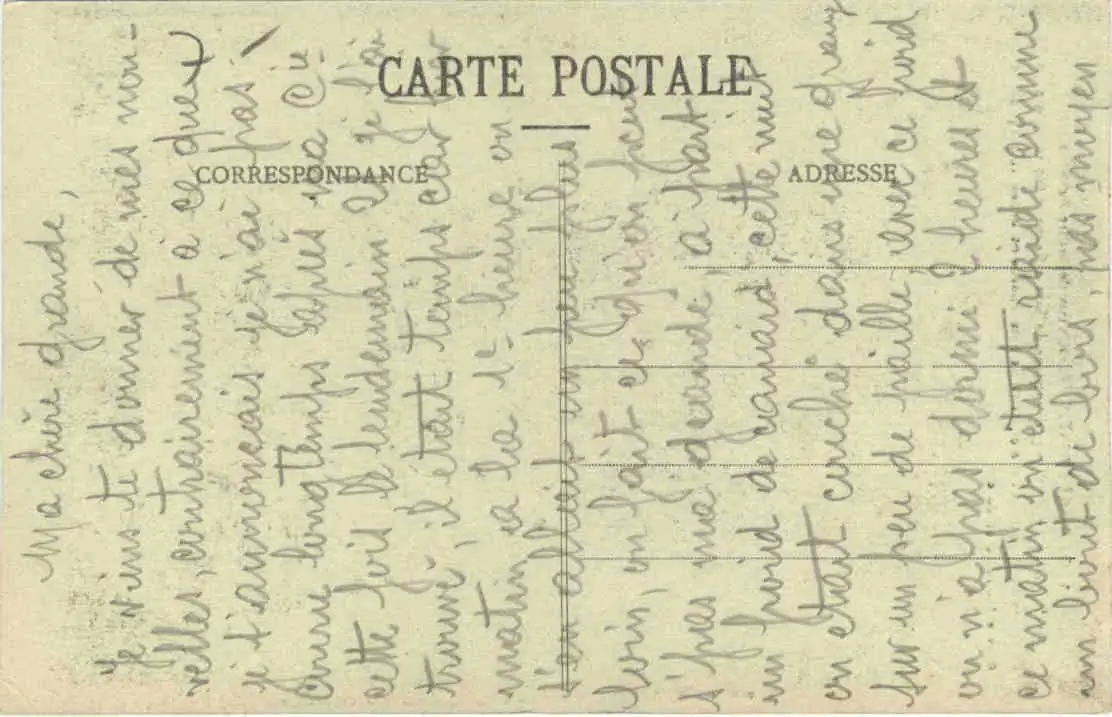 CARTE POSTALE
CORRESPONDANCE
ADRESSE
Ma chère grande,
Je viens te donner de mes nou-
velles, contrairement a ce que
je t'annonçais je n'ai pas
couru longtemps après ma Cie
cette fois le lendemain je l'ai
trouvé, il était temps car
matin a la 1e heure on
s'en allait un peu plus
loin, on fait ce qu'on peut
s'pas ma grande, a part
un froid de canard, cette nuit
on était couché dans une
sur un peu de paille, avec ce froid
on n'a pas dormi heures et
ce matin on était raide comme
un bout de bois, pas moyen